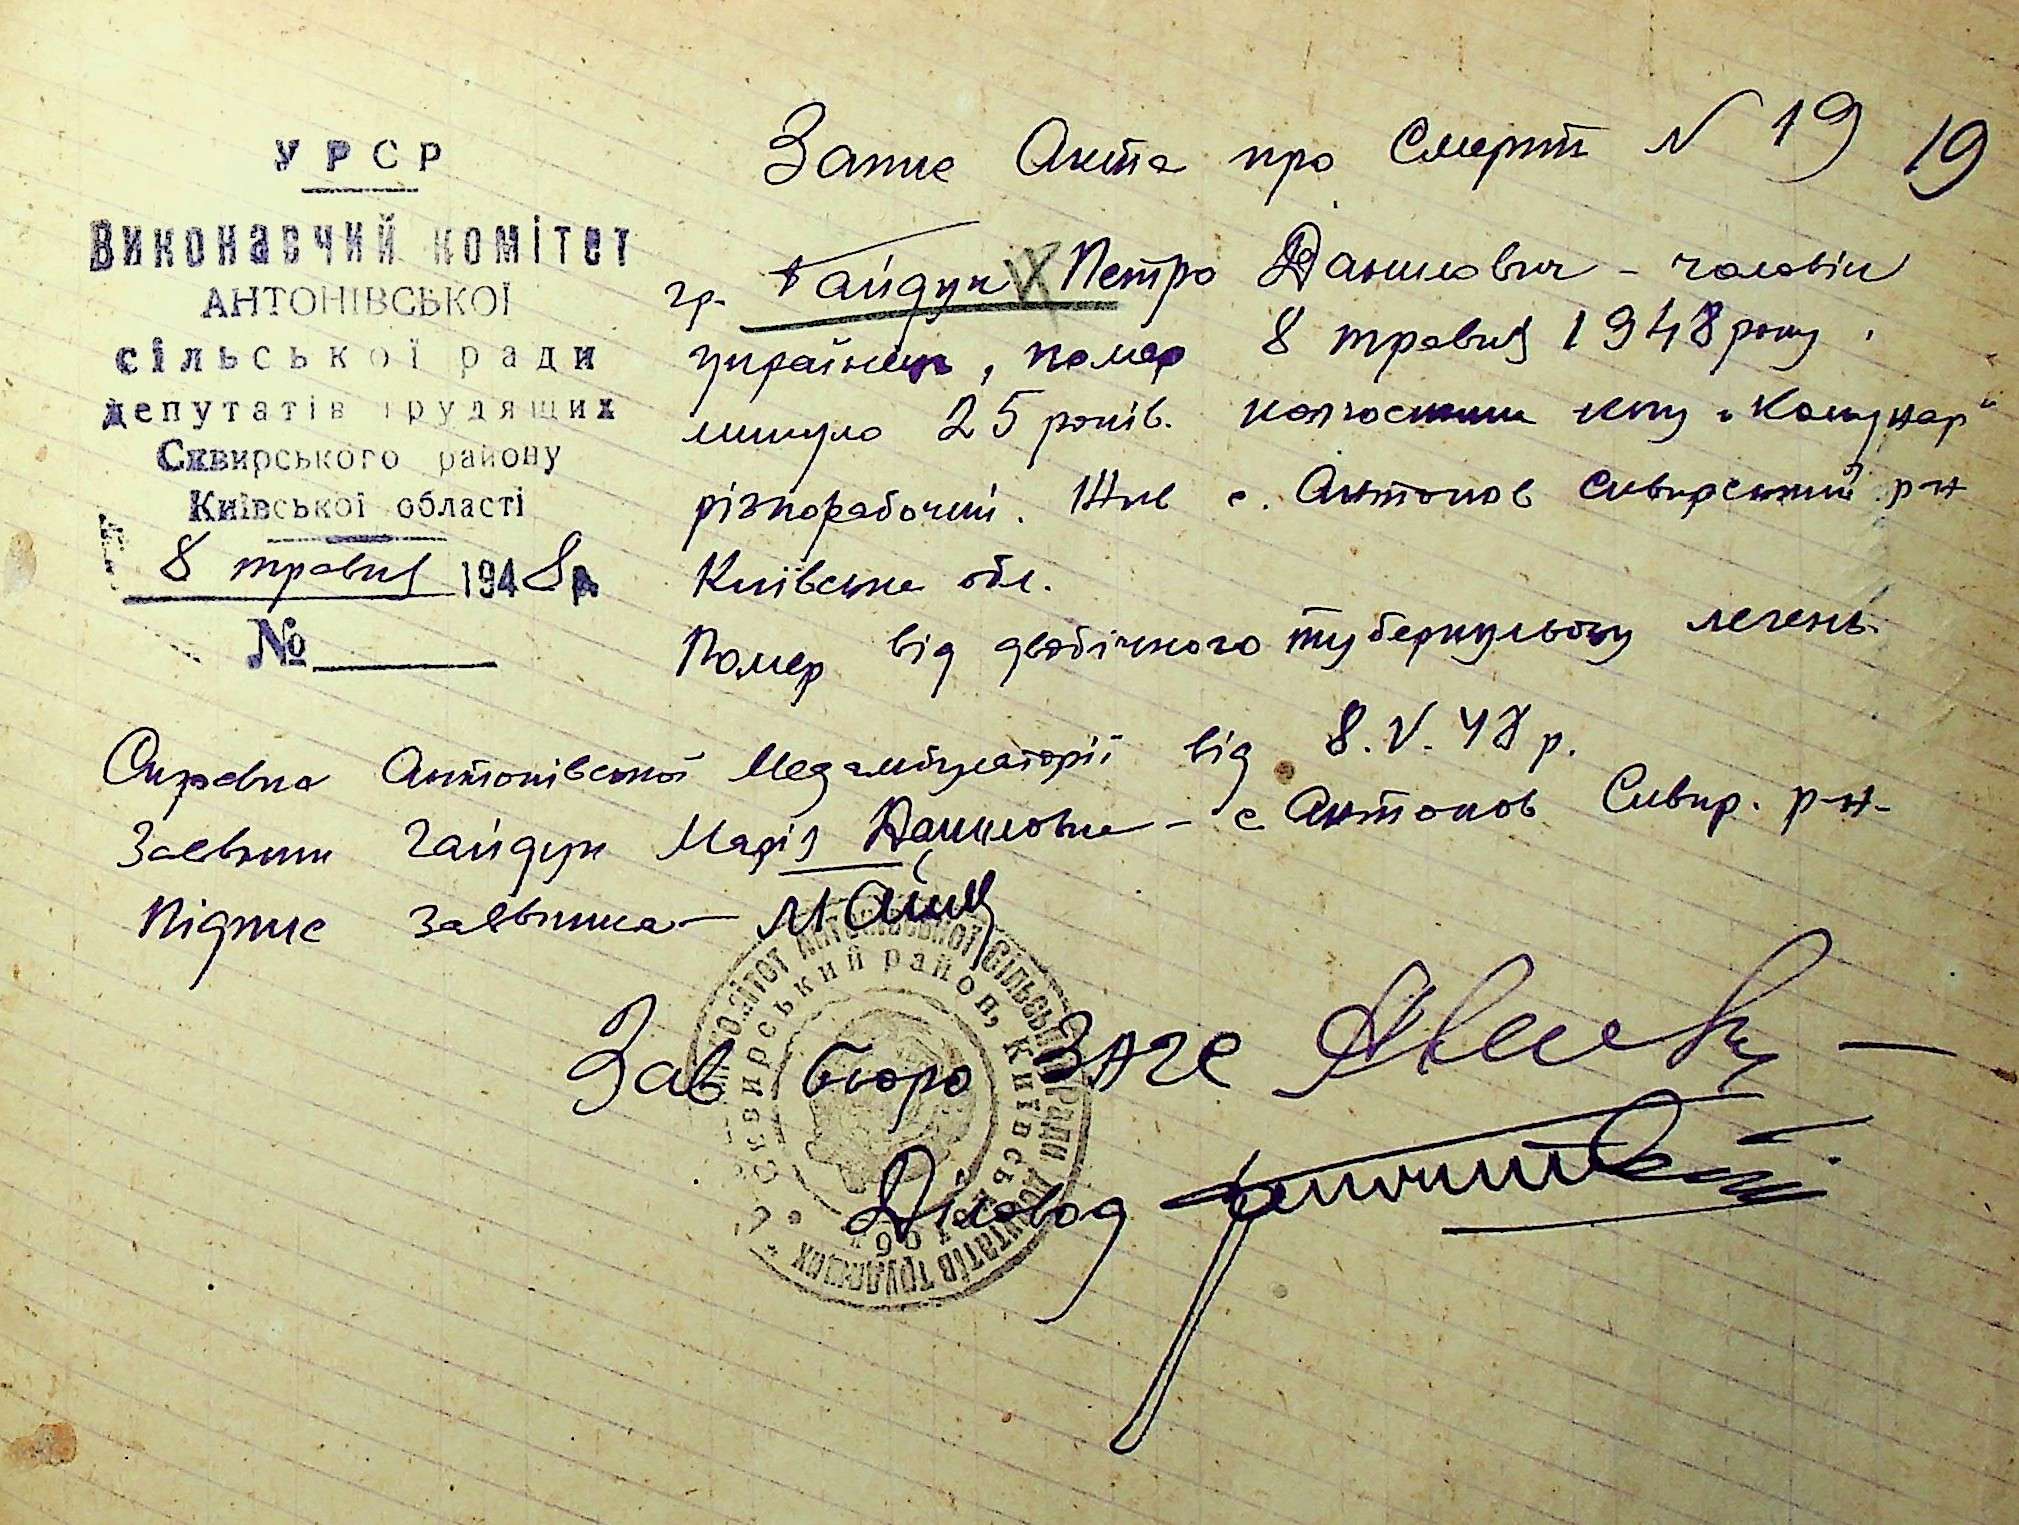 УРСР
Виконавчий комітет
АНТОНІВСЬКОЇ
сільської ради
депутатів трудящих
Сквирського району
Київської області
8 травня 1948р
№
Запис Акта про Смерть N 19 19
гр. Гайдук Петро Данилович - чоловік
українець, помер 8 травня 1948 року.
минуло 25 років. колгоспник к-пу "Комунар"
різнорабочий. Жив с. Антонов Сквирський р-н
Київська обл.
Помер від двобічного туберкульозу легень
Справка Антонівської Медамбулаторії від 8.V.48 р.
Заявник Гайдук Марія Даниловна - с Антонов Сквир. р-н-
Підпис заявника -
Зав бюро ЗАГС
Діловод
комітет Антонівської сільської Ради депутатів трудящих
Сквирський район, Київської